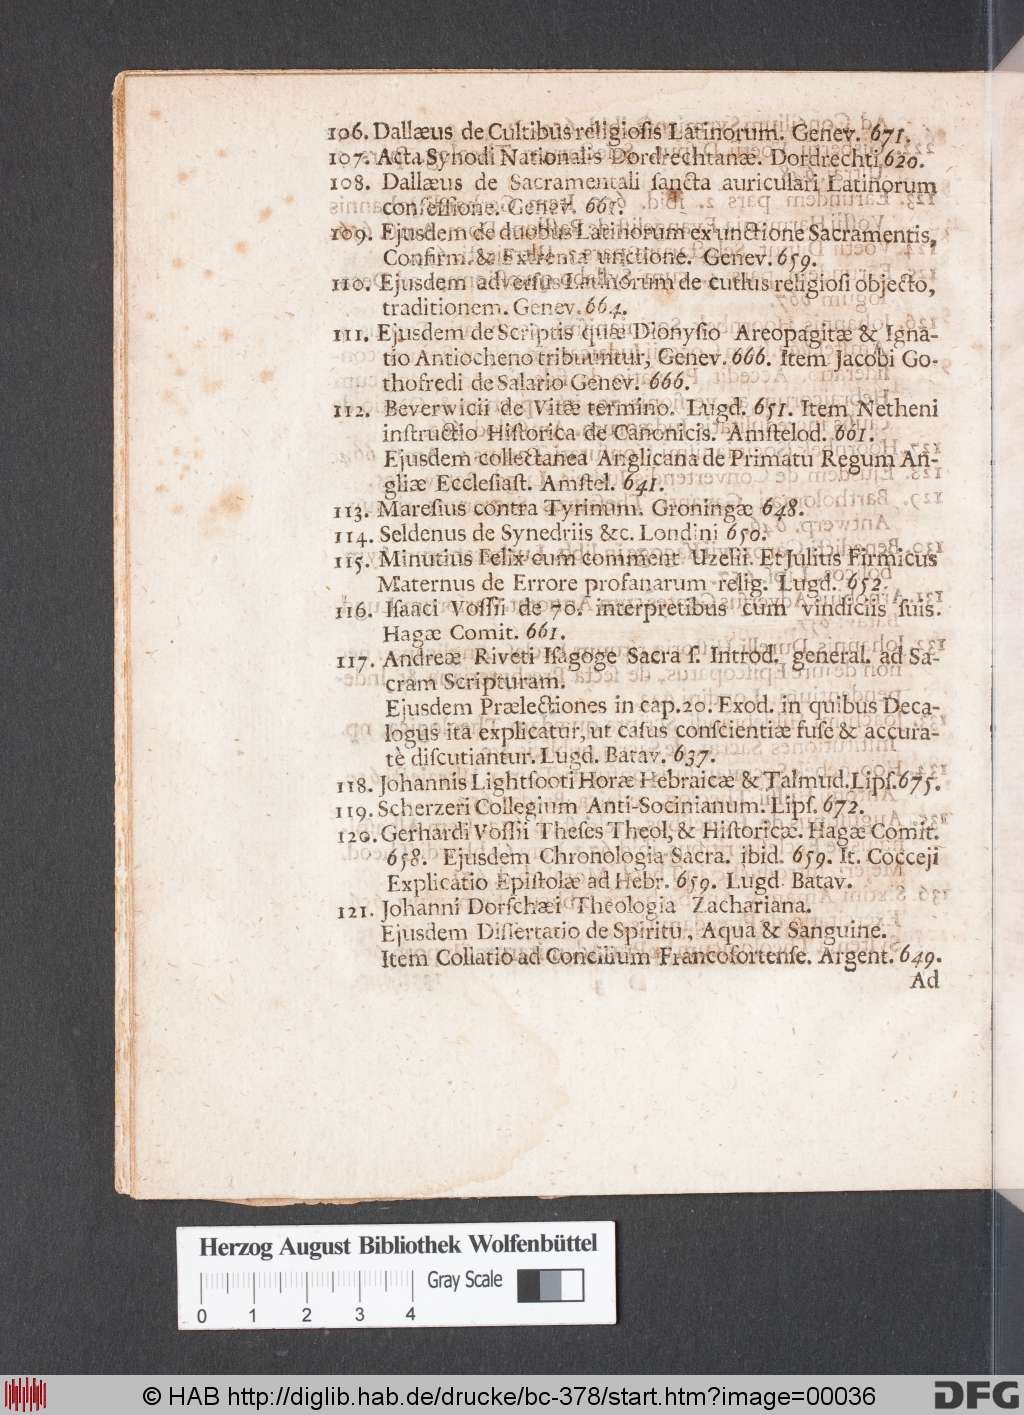 106. Dallæus de Cultibus religiosis Latinorum. Genev. 671.
107. Acta Synodi Nationalis Dordrechtanæ. Dordrechti, 620.
108. Dallæus de Sacramentali sancta auriculari Latinorum
confessione. Genev. 661.
109. Ejusdem de duobus Latinorum ex unctione Sacramentis,
Confirm. & Extrema unctione. Genev. 659.
110. Ejusdem adversus Latinorum de cutlus religiosi objecto,
traditionem. Genev. 664.
111. Ejusdem de Scriptis quæ Dionysio Areopagitæ & Igna-
tio Antiocheno tribuuntur, Genev. 666. Item Jacobi Go-
thofredi de Salario Genev. 666.
112. Beverwicii de Vitæ termino. Lugd. 651. Item Netheni
instructio Historica de Canonicis. Amstelod. 661.
Ejusdem collectanea Anglicana de Primatu Regum An-
gliæ Ecclesiast. Amstel. 641.
113. Maresius contra Tyrinum. Groningæ 648.
114. Seldenus de Synedriis &c. Londini 650.
115. Minutius Felix cum comment Uzelii. Et Julius Firmicus
Maternus de Errore profanarum relig. Lugd. 652.
116. Isaaci Vossii de 70. interpretibus cum vindiciis suis.
Hagæ Comit. 661.
117. Andreæ Riveti Isagoge Sacra s. Introd. general. ad Sa-
cram Scripturam.
Ejusdem Prælectiones in cap. 20. Exod. in quibus Deca-
logus ita explicatur, ut casus conscientiæ fuse & accura-
tè discutiantur. Lugd. Batav. 637.
118. Johannis Lightsooti Horæ Hebraicæ & Talmud. Lips. 675.
119. Scherzeri Collegium Anti-Socinianum. Lips. 672.
120. Gerhardi Vossii Theses Theol, & Historicæ. Hagæ Comit.
658. Ejusdem Chronologia Sacra. ibid. 659. It. Cocceji
Explicatio Epistolæ ad Hebr. 659. Lugd Batav.
121. Johanni Dorschæi Theologia Zachariana.
Ejusdem Dissertatio de Spiritu, Aqua & Sanguine.
Item Collatio ad Concilium Francofortense. Argent. 649.
Ad
Herzog August Bibliothek Wolfenbüttel
Gray Scale
0 1 2 3 4
© HAB http://diglib.hab.de/drucke/bc-378/start.htm?image=00036
DFG